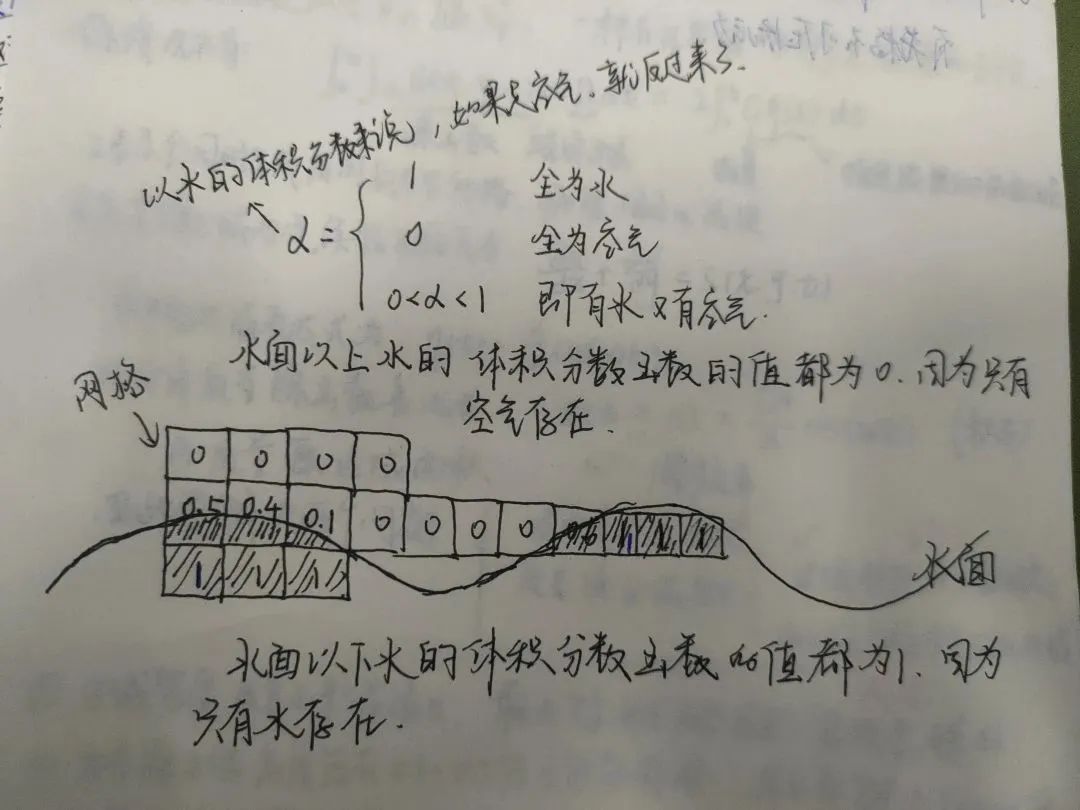 以水的体积分数来说，如果是空气，就反过来了.
α = { 1 全为水
0 全为空气
0<α<1 即有水又有空气.
水面以上水的体积分数函数的值都为0.因为只有
空气存在.
网格
0 0 0 0
0.5 0.4 0.1 0 0 0 0 1
1 1 1
水面
水面以下水的体积分数函数的值都为1.因为
只有水存在.